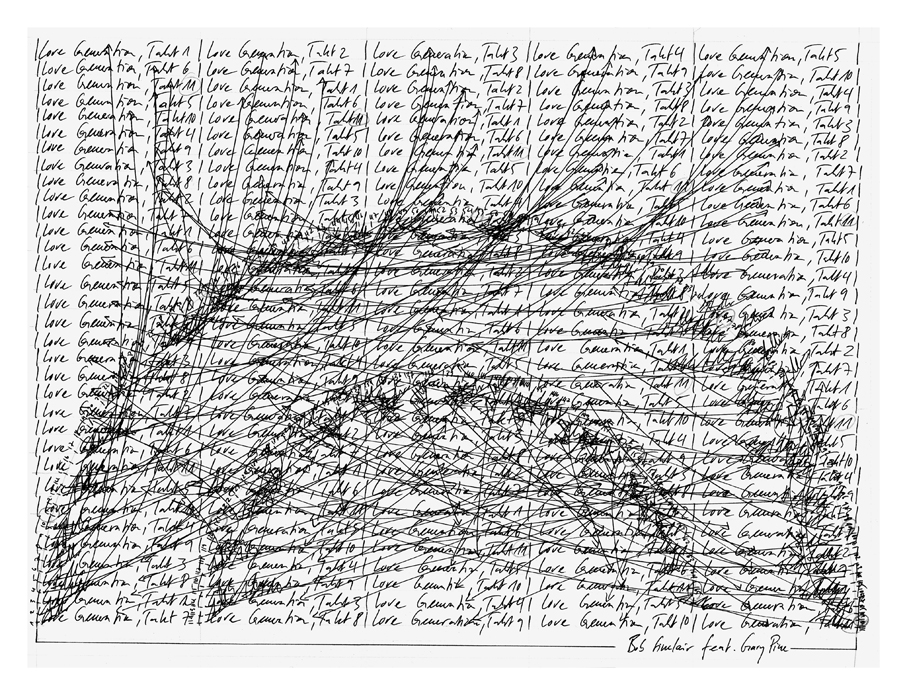 | Love Generation, Takt 1 | Love Generation, Takt 2 | Love Generation, Takt 3 | Love Generation, Takt 4 | Love Generation, Takt 5 |
| Love Generation, Takt 6 | Love Generation, Takt 7 | Love Generation, Takt 8 | Love Generation, Takt 9 | Love Generation, Takt 10 |
| Love Generation, Takt 11 | Love Generation, Takt 1 | Love Generation, Takt 2 | Love Generation, Takt 3 | Love Generation, Takt 4 |
| Love Generation, Takt 5 | Love Generation, Takt 6 | Love Generation, Takt 7 | Love Generation, Takt 8 | Love Generation, Takt 9 |
| Love Generation, Takt 10 | Love Generation, Takt 11 | Love Generation, Takt 1 | Love Generation, Takt 2 | Love Generation, Takt 3 |
| Love Generation, Takt 4 | Love Generation, Takt 5 | Love Generation, Takt 6 | Love Generation, Takt 7 | Love Generation, Takt 8 |
| Love Generation, Takt 9 | Love Generation, Takt 10 | Love Generation, Takt 11 | Love Generation, Takt 1 | Love Generation, Takt 2 |
| Love Generation, Takt 3 | Love Generation, Takt 4 | Love Generation, Takt 5 | Love Generation, Takt 6 | Love Generation, Takt 7 |
| Love Generation, Takt 8 | Love Generation, Takt 9 | Love Generation, Takt 10 | Love Generation, Takt 11 | Love Generation, Takt 1 |
| Love Generation, Takt 2 | Love Generation, Takt 3 | Love Generation, Takt 4 | Love Generation, Takt 5 | Love Generation, Takt 6 |
| Love Generation, Takt | Love Generation, Takt | Love Generation, Takt | Love Generation, Takt 10 | Love Generation, Takt 11 |
| Love Generation, Takt | Love Generation, Takt | Love Generation, Takt | Love Generation, Takt 4 | Love Generation, Takt 5 |
| Love Generation, Takt | Love Generation, Takt | Love Generation, Takt | Love Generation, Takt 9 | Love Generation, Takt 10 |
| Love Generation, Takt 11 | Love Generation, Takt | Love Generation, Takt 2 | Love Generation, Takt 3 | Love Generation, Takt 4 |
| Love Generation, Takt 5 | Love Generation, Takt 6 | Love Generation, Takt 7 | Love Generation, Takt 8 | Love Generation, Takt 9 |
| Love Generation, Takt 10 | Love Generation, Takt 11 | Love Generation, Takt 1 | Love Generation, Takt | Love Generation, Takt 3 |
| Love Generation, Takt | Love Generation, Takt 5 | Love Generation, Takt 6 | Love Generation, Takt | Love Generation, Takt 8 |
| Love Generation, Takt | Love Generation, Takt 10 | Love Generation, Takt 11 | Love Generation, Takt 1 | Love Generation, Takt 2 |
| Love Generation, Takt 3 | Love Generation, Takt 4 | Love Generation, Takt | Love Generation, Takt | Love Generation, Takt 7 |
| Love Generation, Takt 8 | Love Generation, Takt | Love Generation, Takt | Love Generation, Takt 11 | Love Generation, Takt 1 |
| Love Generation, Takt | Love Generation, Takt | Love Generation, Takt | Love Generation, Takt 5 | Love Generation, Takt 6 |
| Love Generation, Takt | Love Generation, Takt | Love Generation, Takt | Love Generation, Takt 10 | Love Generation, Takt 11 |
| Love Generation, Takt | Love Generation, Takt 2 | Love Generation, Takt | Love Generation, Takt 4 | Love Generation, Takt 5 |
| Love Generation, Takt 6 | Love Generation, Takt | Love Generation, Takt | Love Generation, Takt 9 | Love Generation, Takt 10 |
| Love Generation, Takt 11 | Love Generation, Takt 1 | Love Generation, Takt | Love Generation, Takt 3 | Love Generation, Takt 4 |
| Love Generation, Takt 5 | Love Generation, Takt 6 | Love Generation, Takt 7 | Love Generation, Takt | Love Generation, Takt 9 |
| Love Generation, Takt | Love Generation, Takt | Love Generation, Takt 1 | Love Generation, Takt | Love Generation, Takt |
| Love Generation, Takt 4 | Love Generation, Takt 5 | Love Generation, Takt | Love Generation, Takt | Love Generation, Takt |
| Love Generation, Takt 9 | Love Generation, Takt 10 | Love Generation, Takt 11 | Love Generation, Takt | Love Generation, Takt 2 |
| Love Generation, Takt 3 | Love Generation, Takt 4 | Love Generation, Takt 5 | Love Generation, Takt | Love Generation, Takt 7 |
| Love Generation, Takt 8 | Love Generation, Takt 9 | Love Generation, Takt 10 | Love Generation, Takt 11 | Love Generation, Takt |
| Love Generation, Takt | Love Generation, Takt 3 | Love Generation, Takt 4 | Love Generation, Takt 5 | Love Generation, Takt 6 |
| Love Generation, Takt 7 | Love Generation, Takt 8 | Love Generation, Takt 9 | Love Generation, Takt 10 | Love Generation, Takt 11 |
Bob Sinclair feat. Gary Pine